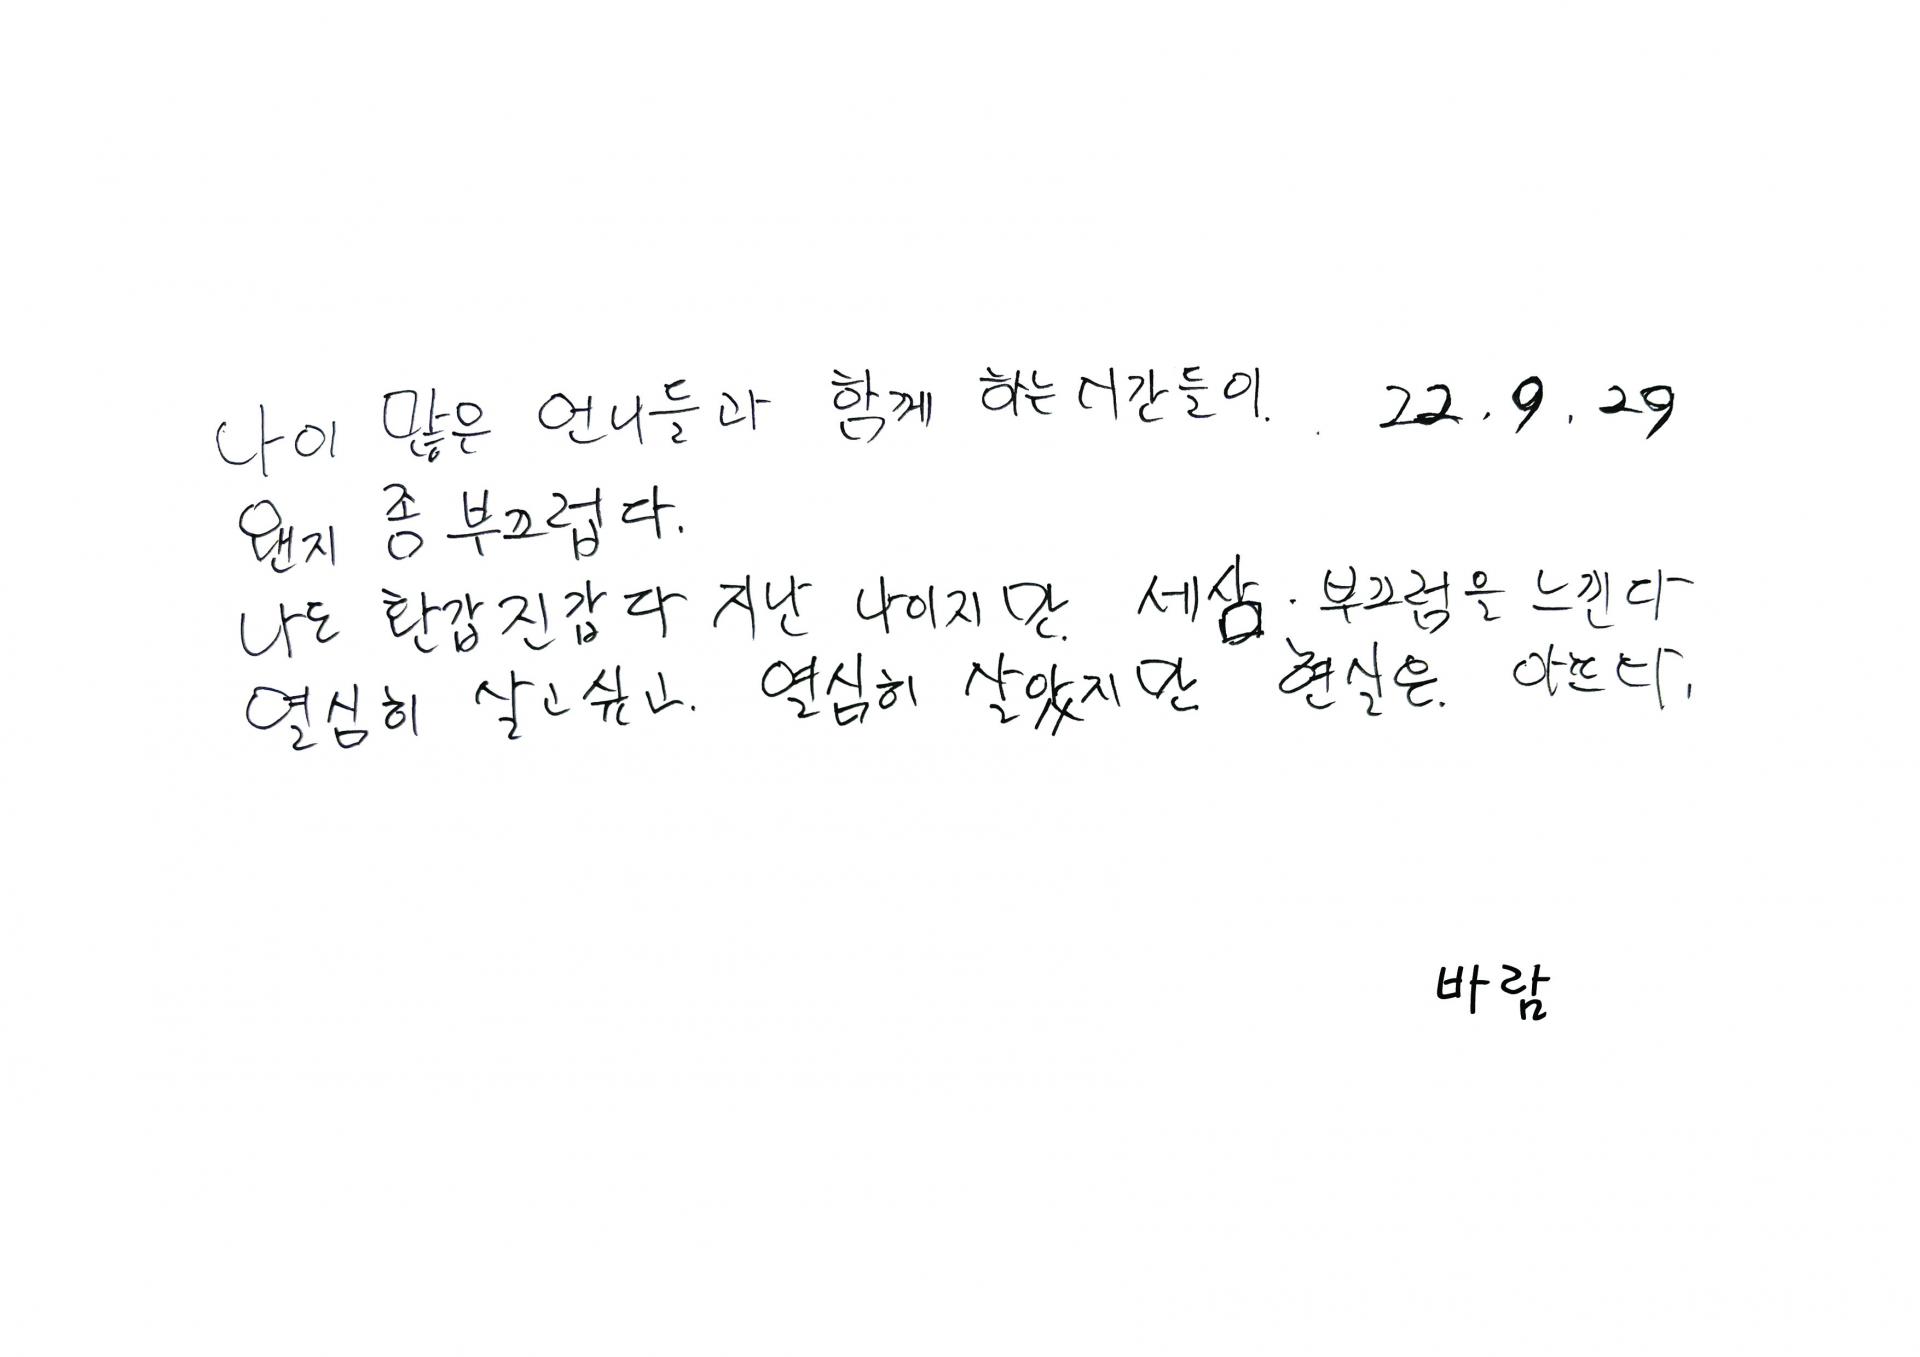 나이 많은 언니들과 함께 하는 시간들이. . 22. 9. 29
왠지 좀 부끄럽다.
나도 환갑진갑 다 지난 나이지만. 세삼. 부끄럼을 느낀다
열심히 살고싶고. 열심히 살았지만 현실은. 아프다.
바람